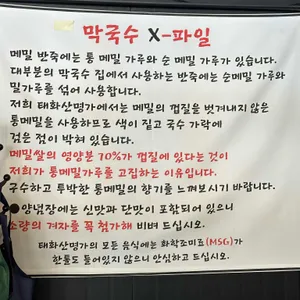 막국수 X-파일
메밀 반죽에는 통 메밀 가루와 순 메밀 가루가 있습니다.
대부분의 막국수 집에서 사용하는 반죽에는 순메밀 가루와
밀가루를 섞어 사용합니다.
저희 태화산명가에서는 메밀의 껍질을 벗겨내지 않은
통메밀을 사용하므로 색이 짙고 국수 가락에
검은 점이 박혀 있습니다.
메밀쌀의 영양분 70%가 껍질에 있다는 것이
저희가 통메밀가루를 고집하는 이유입니다.
구수하고 투박한 통메밀의 향기를 느껴보시기 바랍니다.
양념장에는 신맛과 단맛이 포함되어 있으니
소량의 겨자를 꼭 첨가해 비벼 드십시오.
태화산명가의 모든 음식에는 화학조미료(MSG)가
한톨도 들어있지 않으니 안심하고 드십시오.